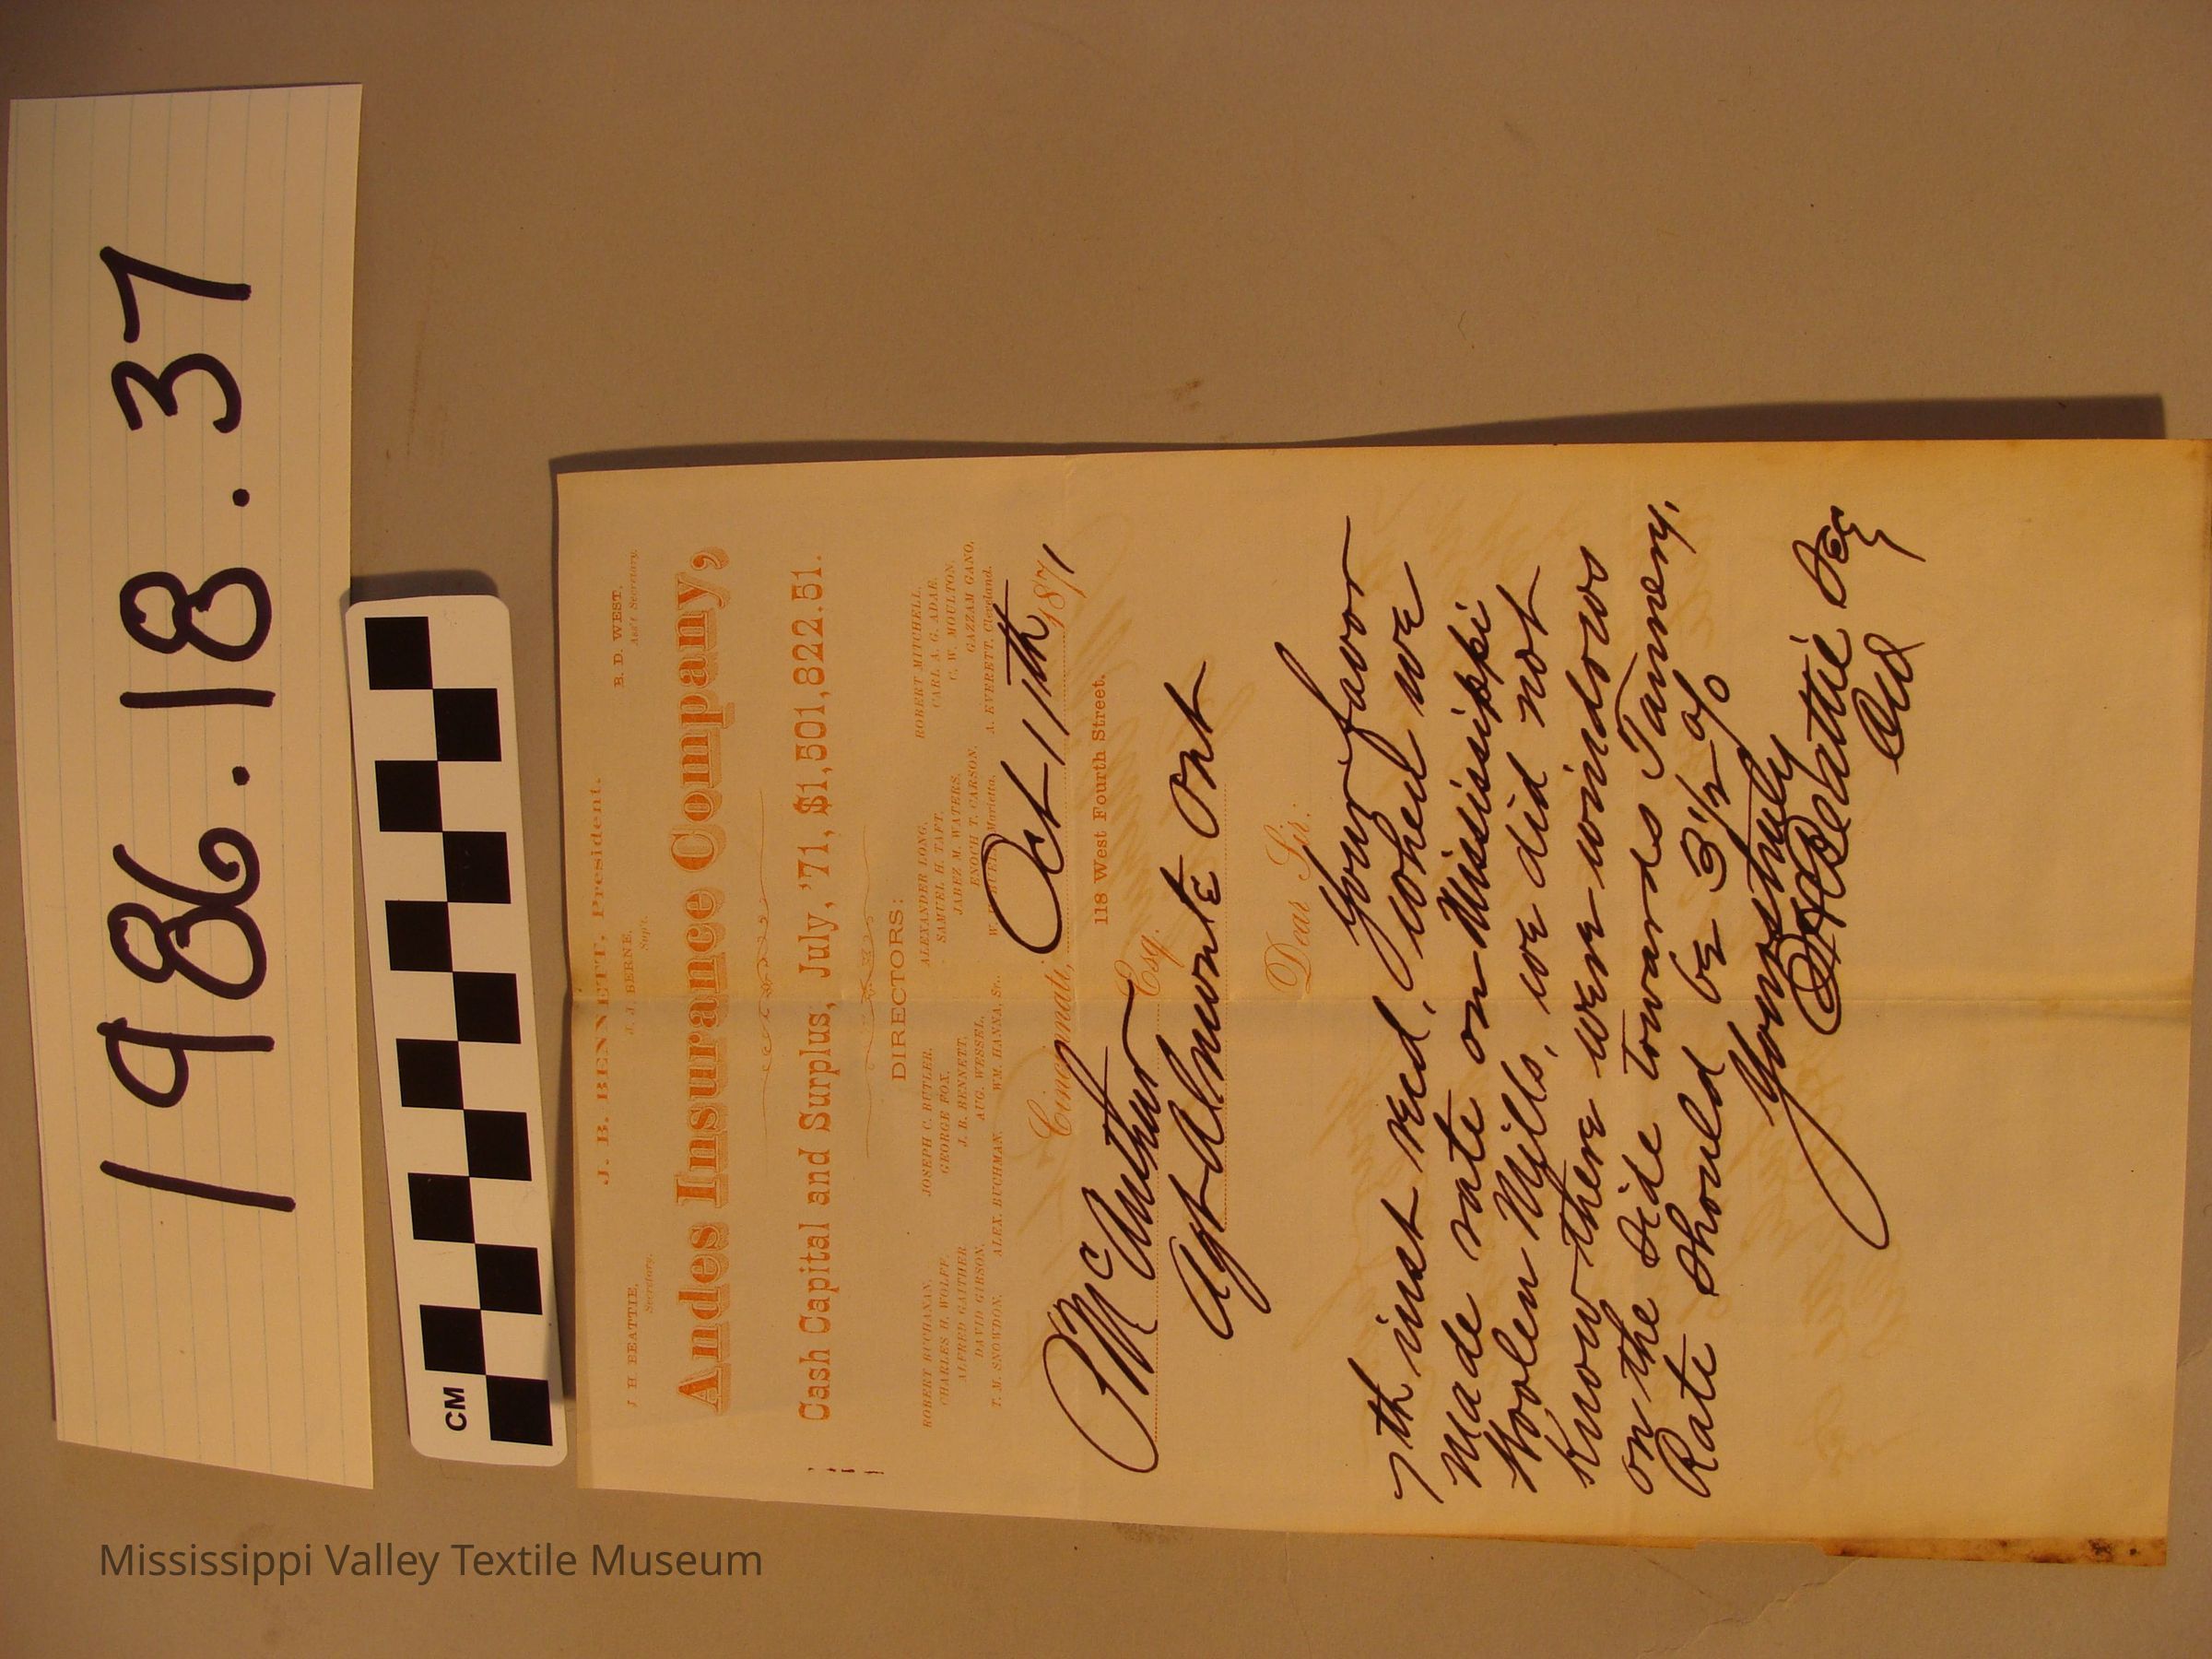 1986.18.37
CM
J. B. BENNETT, President.
J. H. BEATTIE, Secretary.
J. J. BERNE, Sup't.
B. D. WEST, Ass't Secretary.
Andes Insurance Company,
Cash Capital and Surplus, July, '71, $1,501,822.51.
DIRECTORS:
ROBERT BUCHANAN, JOSEPH C. BUTLER, ALEXANDER LONG, ROBERT MITCHELL,
CHARLES H. WOLFF, GEORGE FOX, SAMUEL H. TAFT, CARL A. G. ADAE,
ALFRED GAITHER, J. B. BENNETT, JABEZ M. WATERS, C. W. MOULTON,
DAVID GIBSON, AUG. WESSEL, ENOCH T. CARSON, GAZZAM GANO,
T. M. SNOWDON, ALEX. BUCHMAN, WM. HANNA, Sr., Marietta, A. EVERETT, Cleveland.
Cincinnati, Oct 11th 1871
118 West Fourth Street.
P McArthur Esq.
Agt Almonte Ont
Dear Sir:
Your favor
7th inst recd. When we
made rate on Mississippi
Woolen Mills, we did not
know there were windows
on the side towards Tannery.
Rate should be 3 1/2 %
Yours truly
J H Beattie Secy
Mississippi Valley Textile Museum